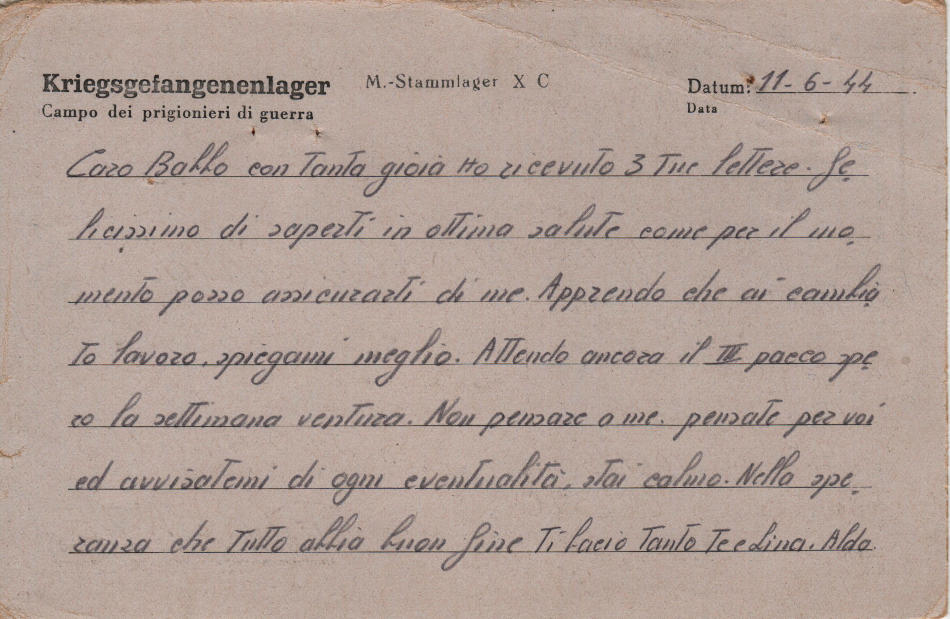 Kriegsgefangenenlager M.-Stammlager X C Datum: 11-6-44
Campo dei prigionieri di guerra Data
Caro Babbo con tanta gioia ho ricevuto 3 tue lettere. Fe-
licissimo di saperti in ottima salute come per il mo-
mento posso assicurarti di me. Apprendo che ai cambia
to lavoro, spiegami meglio. Attendo ancora il III pacco spe-
ro la settimana ventura. Non pensare a me. pensate per voi
ed avvisatemi di ogni eventualità, stai calmo. Nella spe-
ranza che tutto abbia buon fine Ti bacio Tanto Te e Dina. Aldo.